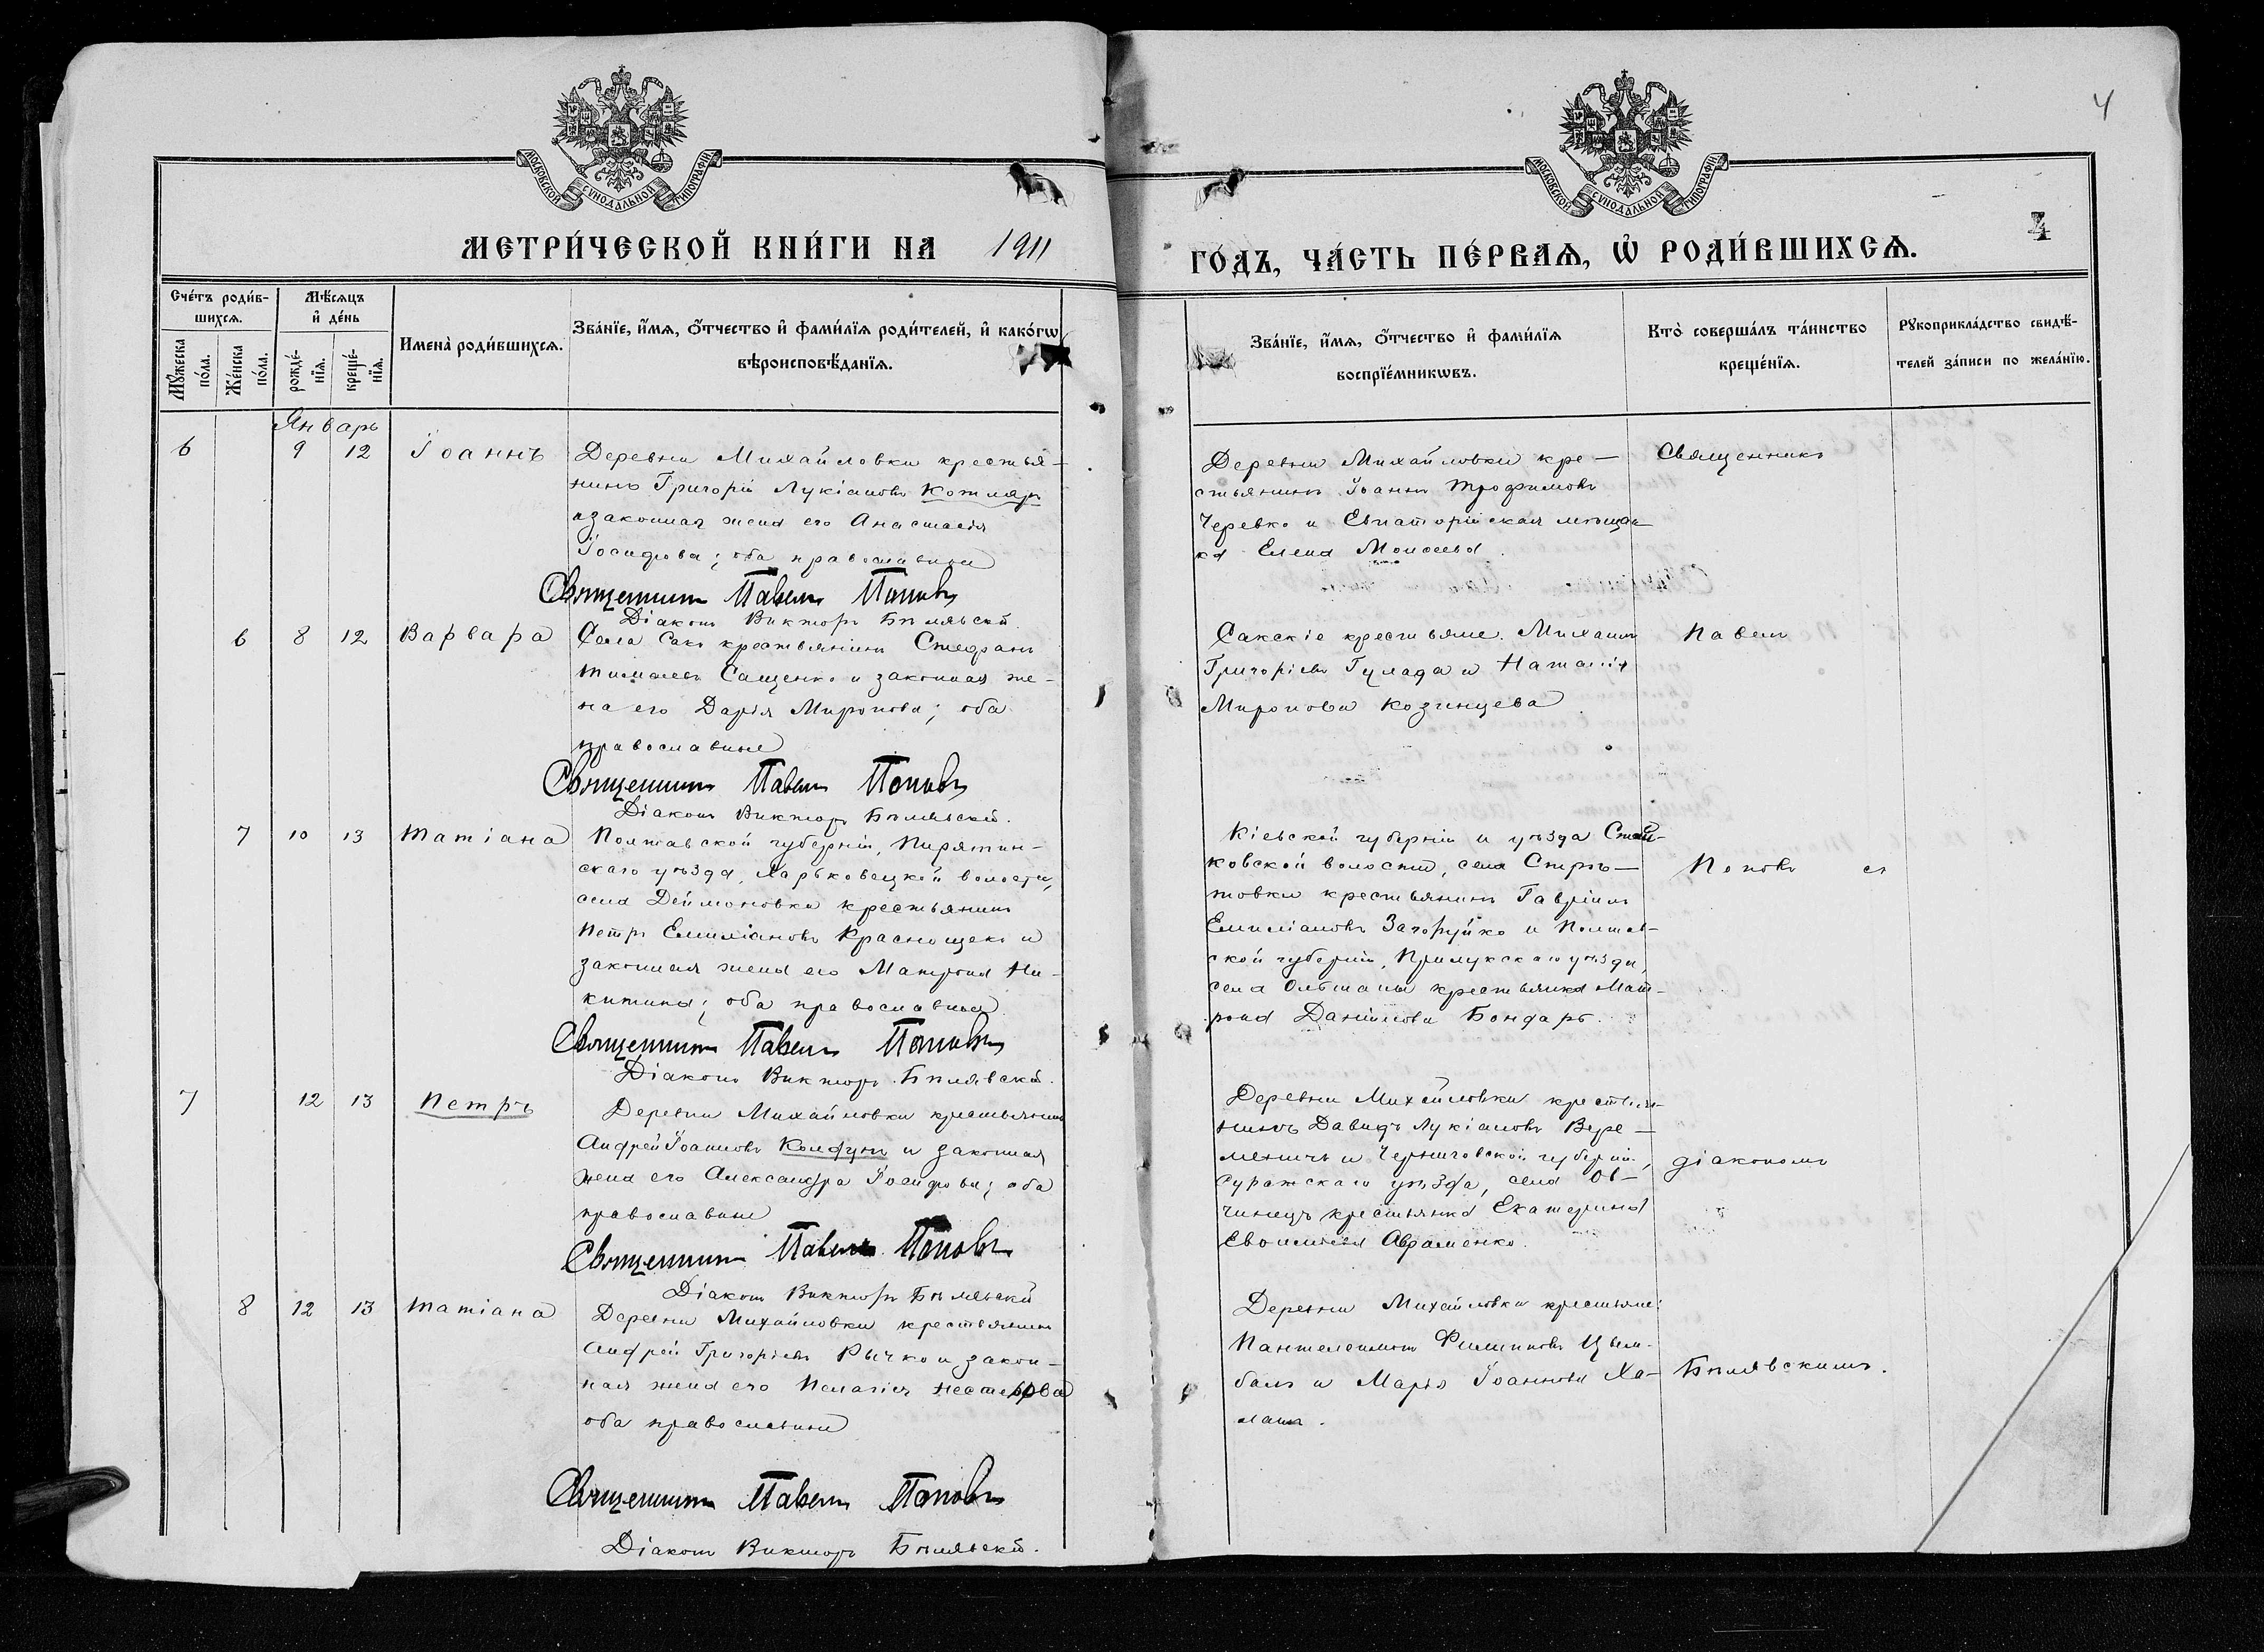 4
МОСКОВСКОЙ СѴНОДАЛЬНОЙ ТИПОГРАФІИ
МОСКОВСКОЙ СѴНОДАЛЬНОЙ ТИПОГРАФІИ
4
МЕТРИ́ЧЕСКОЙ КНИ́ГИ НА 1911
ГО́ДЪ, ЧА́СТЬ ПЕ́РВАѦ, Ѡ҆ РОДИ́ВШИХСѦ.
Сче́тъ роди́в-
шихсѧ.
Мѹ́жеска по́ла.
Же́нска по́ла.
Мѣ́сѧцъ
и҆ де́нь
рожде́-
нїѧ.
креще́-
нїѧ.
Имена̀ роди́вшихсѧ.
Зва́нїе, и҆́мѧ, ѻ҆́тчество и҆ фами́лїѧ роди́телей, и҆ како́гѡ
вѣроисповѣ́данїѧ.
Зва́нїе, и҆́мѧ, ѻ҆́тчество и҆ фами́лїѧ
воспрїе́мникѡвъ.
Кто̀ соверша́лъ та́инство
креще́нїѧ.
Рꙋкоприкла́дство свидѣ́-
телей за́писи по жела́нїю.
Январь
6 9 12 Іоаннъ
Деревни Михайловки крестья-
нинъ Григорій Лукіановъ Котляръ
и законная жена его Анастасія
Іосифова; оба православные
Священникъ Павелъ Поповъ
Діаконъ Викторъ Бѣлявскій.
Деревни Михайловки кре-
стьянинъ Іоаннъ Трофимовъ
Черевко и Евпаторійская мѣщан-
ка Елена Моисеева.
Священникъ
6 8 12 Варвара
Села Саки крестьянинъ Стефанъ
Тимофеевъ Сащенко и законная же-
на его Дарія Миронова; оба
православные
Священникъ Павелъ Поповъ
Діаконъ Викторъ Бѣлявскій.
Сакскіе крестьяне: Михаилъ
Григоріевъ Гулада и Наталія
Миронова Козинцева
Павелъ
7 10 13 Татіана
Полтавской губерніи, Пирятин-
скаго уѣзда, Харьковецкой волости,
села Деймановки крестьянинъ
Петръ Емиліановъ Краснощекъ и
законная жена его Матрона Ни-
китина; оба православные.
Священникъ Павелъ Поповъ
Діаконъ Викторъ Бѣлявскій.
Кіевской губерніи и уѣзда Стай-
ковской волости, села Стрѣ-
товки крестьянинъ Гавріилъ
Емиліановъ Загоруйко и Полтав-
ской губерніи, Прилукскаго уѣзда,
села Ольшаны крестьянка Мат-
рона Данiилова Бондарь.
Поповъ съ
7 12 13 Петръ
Деревни Михайловки крестьянинъ
Андрей Іоанновъ Колфунъ и законная
жена его Александра Іосифова; оба
православные
Священникъ Павелъ Поповъ
Діаконъ Викторъ Бѣлявскій
Деревни Михайловки крестья-
нинъ Давидъ Лукіановъ Вере-
меничъ и Черниговской губерніи,
Суражскаго уѣзда, села Ов-
чинецъ крестьянка Екатерина
Авраменко.
діакономъ
8 12 13 Татіана
Деревни Михайловки крестьянинъ
Андрей Григоріевъ Рычко и закон-
ная жена его Пелагія Нестерова
оба православные
Священникъ Павелъ Поповъ
Діаконъ Викторъ Бѣлявскій.
Деревни Михайловки крестьяне:
Пантелеимонъ Филипповъ Цым-
балъ и Марія Іоаннова Ха-
лаим.
Бѣлявскимъ.